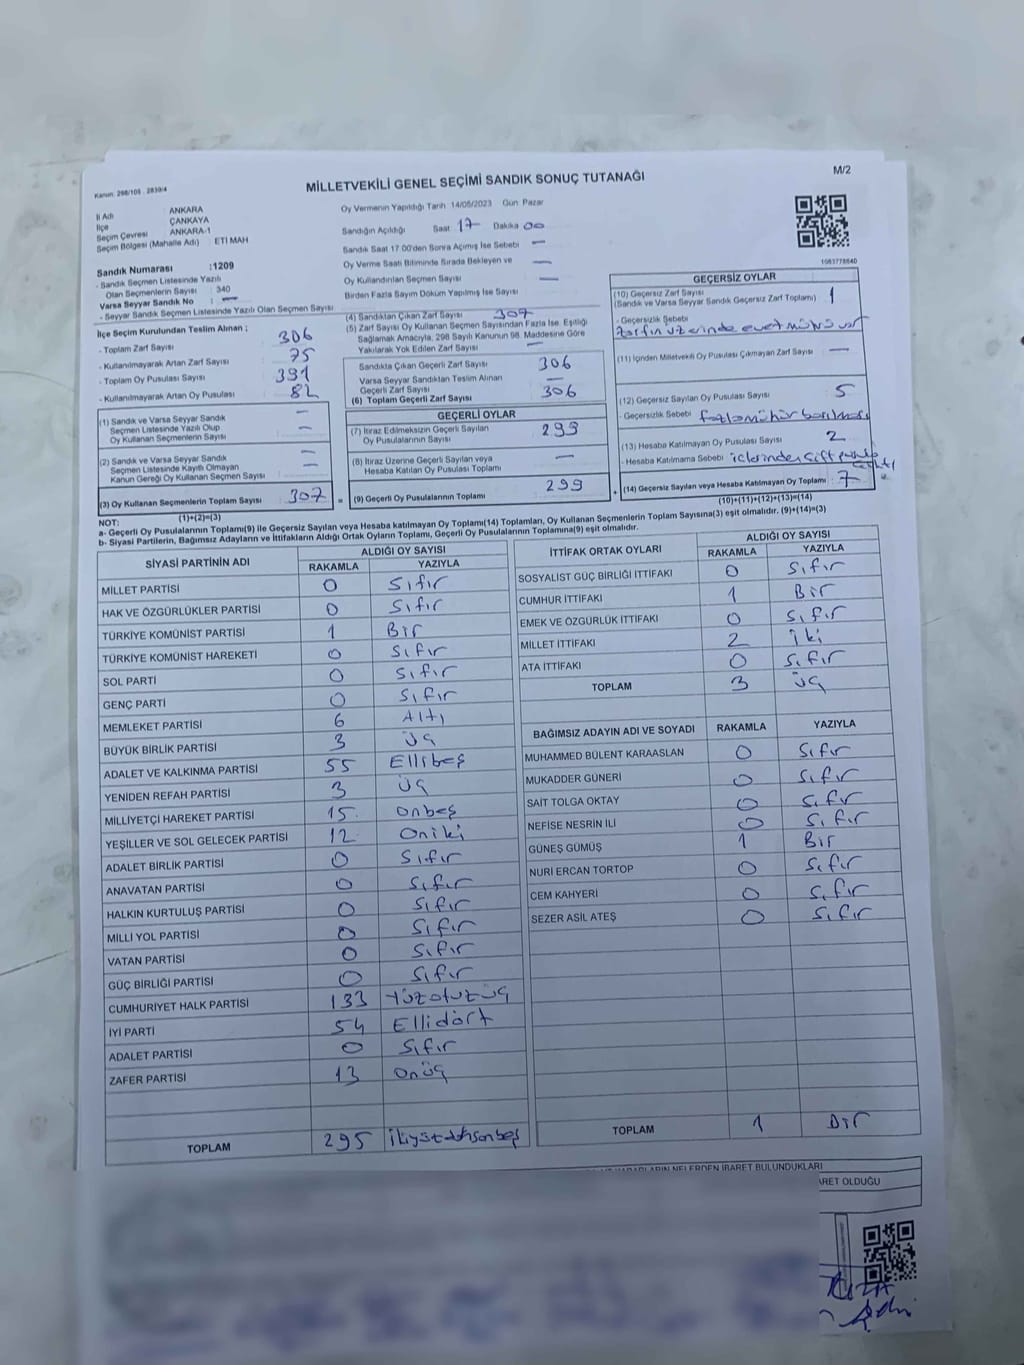 Kanun: 298/105 - 2839/4
MİLLETVEKİLİ GENEL SEÇİMİ SANDIK SONUÇ TUTANAĞI
M/2
İl Adı ANKARA
İlçe ÇANKAYA
Seçim Çevresi ANKARA-1
Seçim Bölgesi (Mahalle Adı) ETİ MAH
Sandık Numarası :1209
- Sandık Seçmen Listesinde Yazılı
Olan Seçmenlerin Sayısı : 340
Varsa Seyyar Sandık No : —
- Seyyar Sandık Seçmen Listesinde Yazılı Olan Seçmen Sayısı
Oy Vermenin Yapıldığı Tarih 14/05/2023 Gün Pazar
Sandığın Açıldığı Saat 17 Dakika 00
Sandık Saat 17:00'den Sonra Açılmış İse Sebebi —
Oy Verme Saati Bitiminde Sırada Bekleyen ve
Oy Kullandırılan Seçmen Sayısı —
Birden Fazla Sayım Döküm Yapılmış İse Sayısı —
1083778840
İlçe Seçim Kurulundan Teslim Alınan ;
- Toplam Zarf Sayısı 306
- Kullanılmayarak Artan Zarf Sayısı 75
- Toplam Oy Pusulası Sayısı 391
- Kullanılmayarak Artan Oy Pusulası 82
(1) Sandık ve Varsa Seyyar Sandık
Seçmen Listesinde Yazılı Olup
Oy Kullanan Seçmenlerin Sayısı —
(2) Sandık ve Varsa Seyyar Sandık
Seçmen Listesinde Kayıtlı Olmayan
Kanun Gereği Oy Kullanan Seçmen Sayısı —
(3) Oy Kullanan Seçmenlerin Toplam Sayısı 307 =
(1)+(2)=(3)
(4) Sandıktan Çıkan Zarf Sayısı 307
(5) Zarf Sayısı Oy Kullanan Seçmen Sayısından Fazla İse, Eşitliği
Sağlamak Amacıyla, 298 Sayılı Kanunun 98. Maddesine Göre
Yakılarak Yok Edilen Zarf Sayısı —
Sandıkta Çıkan Geçerli Zarf Sayısı 306
Varsa Seyyar Sandıktan Teslim Alınan
Geçerli Zarf Sayısı —
(6) Toplam Geçerli Zarf Sayısı 306
GEÇERLİ OYLAR
(7) İtiraz Edilmeksizin Geçerli Sayılan
Oy Pusulalarının Sayısı 299
(8) İtiraz Üzerine Geçerli Sayılan veya
Hesaba Katılan Oy Pusulası Toplamı —
(9) Geçerli Oy Pusulalarının Toplamı 299 +
GEÇERSİZ OYLAR
(10) Geçersiz Zarf Sayısı
(Sandık ve Varsa Seyyar Sandık Geçersiz Zarf Toplamı) 1
- Geçersizlik Sebebi
Zarfın üzerinde evet mührü var
(11) İçinden Milletvekili Oy Pusulası Çıkmayan Zarf Sayısı —
(12) Geçersiz Sayılan Oy Pusulası Sayısı 5
- Geçersizlik Sebebi fazla mühür basılması
(13) Hesaba Katılmayan Oy Pusulası Sayısı 2
- Hesaba Katılmama Sebebi içlerinden çift pusula
çıktı
(14) Geçersiz Sayılan veya Hesaba Katılmayan Oy Toplamı : 7
(10)+(11)+(12)+(13)=(14)
NOT:
a- Geçerli Oy Pusulalarının Toplamı(9) ile Geçersiz Sayılan veya Hesaba katılmayan Oy Toplamı(14) Toplamları, Oy Kullanan Seçmenlerin Toplam Sayısına(3) eşit olmalıdır. (9)+(14)=(3)
b- Siyasi Partilerin, Bağımsız Adayların ve İttifakların Aldığı Ortak Oyların Toplamı, Geçerli Oy Pusulalarının Toplamına(9) eşit olmalıdır.
SİYASİ PARTİNİN ADI ALDIĞI OY SAYISI
RAKAMLA YAZIYLA
MİLLET PARTİSİ 0 Sıfır
HAK VE ÖZGÜRLÜKLER PARTİSİ 0 Sıfır
TÜRKİYE KOMÜNİST PARTİSİ 1 Bir
TÜRKİYE KOMÜNİST HAREKETİ 0 Sıfır
SOL PARTİ 0 Sıfır
GENÇ PARTİ 0 Sıfır
MEMLEKET PARTİSİ 6 Altı
BÜYÜK BİRLİK PARTİSİ 3 üç
ADALET VE KALKINMA PARTİSİ 55 Ellibeş
YENİDEN REFAH PARTİSİ 3 üç
MİLLİYETÇİ HAREKET PARTİSİ 15 onbeş
YEŞİLLER VE SOL GELECEK PARTİSİ 12 Oniki
ADALET BİRLİK PARTİSİ 0 Sıfır
ANAVATAN PARTİSİ 0 Sıfır
HALKIN KURTULUŞ PARTİSİ 0 Sıfır
MİLLİ YOL PARTİSİ 0 Sıfır
VATAN PARTİSİ 0 Sıfır
GÜÇ BİRLİĞİ PARTİSİ 0 Sıfır
CUMHURİYET HALK PARTİSİ 133 Yüzotuzüç
İYİ PARTİ 54 Ellidört
ADALET PARTİSİ 0 Sıfır
ZAFER PARTİSİ 13 Onüç
TOPLAM 295
İTTİFAK ORTAK OYLARI ALDIĞI OY SAYISI
RAKAMLA YAZIYLA
SOSYALİST GÜÇ BİRLİĞİ İTTİFAKI 0 Sıfır
CUMHUR İTTİFAKI 1 Bir
EMEK VE ÖZGÜRLÜK İTTİFAKI 0 Sıfır
MİLLET İTTİFAKI 2 İki
ATA İTTİFAKI 0 Sıfır
TOPLAM 3 üç
BAĞIMSIZ ADAYIN ADI VE SOYADI RAKAMLA YAZIYLA
MUHAMMED BÜLENT KARAASLAN 0 Sıfır
MUKADDER GÜNERİ 0 Sıfır
SAİT TOLGA OKTAY 0 Sıfır
NEFİSE NESRİN İLİ 0 Sıfır
GÜNEŞ GÜMÜŞ 1 Bir
NURİ ERCAN TORTOP 0 Sıfır
CEM KAHYERİ 0 Sıfır
SEZER ASİL ATEŞ 0 Sıfır
TOPLAM 1 Bir
NELERDEN İBARET BULUNDUKLARI
OLDUĞU